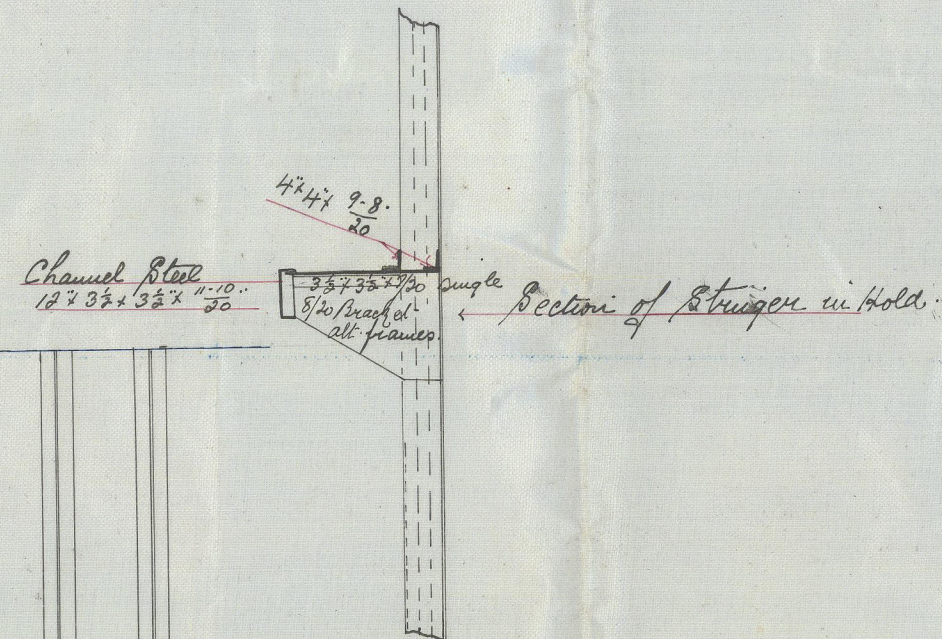 4" × 4" × 9-8/20
Channel Steel
12" × 3½" × 3½" × 11-10/20
3½" × 3½" × 7/20 angle
8/20 Bracket
alt. frames.
Section of Stringer in Hold.